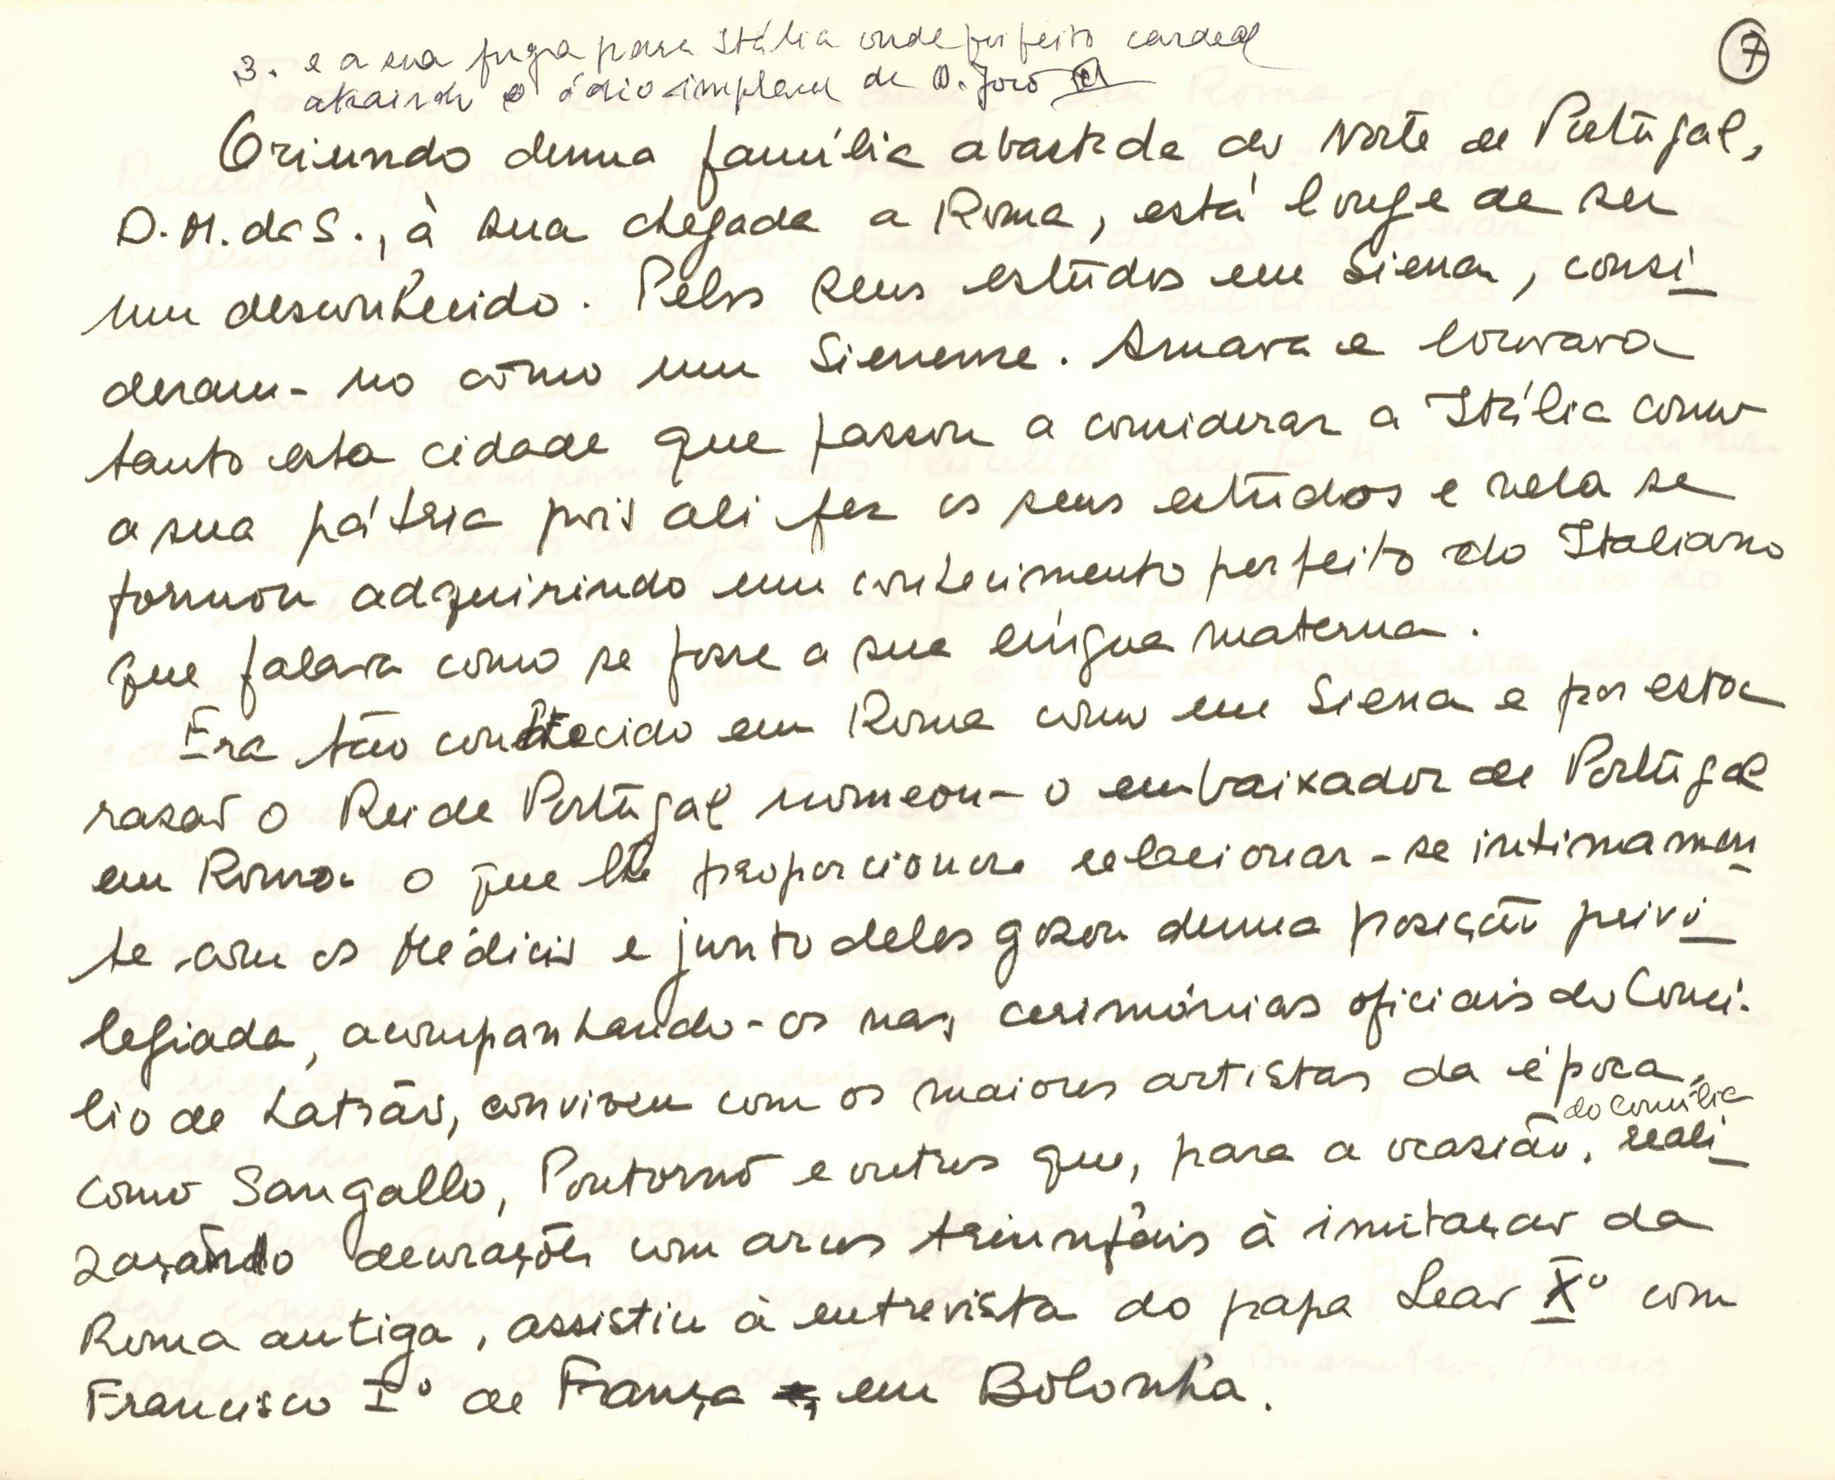 7
3. e a sua fuga para Itália onde foi feito cardeal
atraindo o ódio implacavel de D. João III
Oriundo duma família abastada do Norte de Portugal,
D. M. da S., à sua chegada a Roma, está longe de ser
um desconhecido. Pelos seus estudos em Siena, consi
deram-no como um Sienense. Amava e louvava
tanto esta cidade que passou a considerar a Itália como
a sua pátria pois ali fez os seus estudos e nela se
formou adquirindo um conhecimento perfeito do Italiano
que falava como se fosse a sua língua materna.
Era tão conhecido em Roma como em Siena e por esta
razão o Rei de Portugal nomeou-o embaixador de Portugal
em Roma o que lhe proporcionou relacionar-se intimamen
te com os Médicis e junto deles gozou duma posição privi
legiada, acompanhando-os nas cerimónias oficiais do Concí-
lio de Latrão, conviveu com os maiores artistas da época,
como Sangallo, Pontormo e outros que, para a ocasião do Concílio, reali
zando decorações com arcos triunfais à imitação da
Roma antiga, assistiu à entrevista do papa Leão Xº com
Francisco Iº de França em Bolonha.